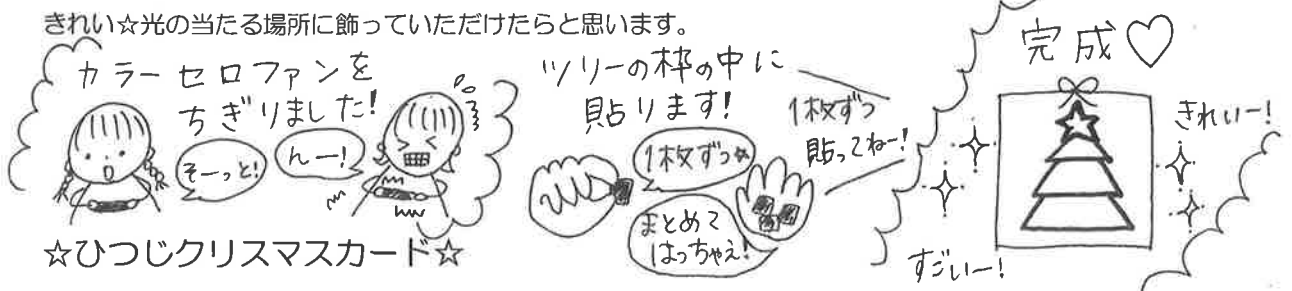 きれい☆光の当たる場所に飾っていただけたらと思います。
カラーセロファンを
ちぎりました!
そーっと!
んー!
ツリーの枠の中に
貼ります!
1枚ずつ☆
まとめて
はっちゃえ!
1枚ずつ
貼ってねー!
完成♡
きれいー!
すごいー!
☆ひつじクリスマスカード☆